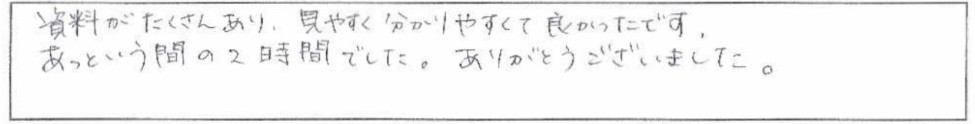 資料がたくさんあり、見やすく分かりやすくて良かったです。
あっという間の2時間でした。ありがとうございました。